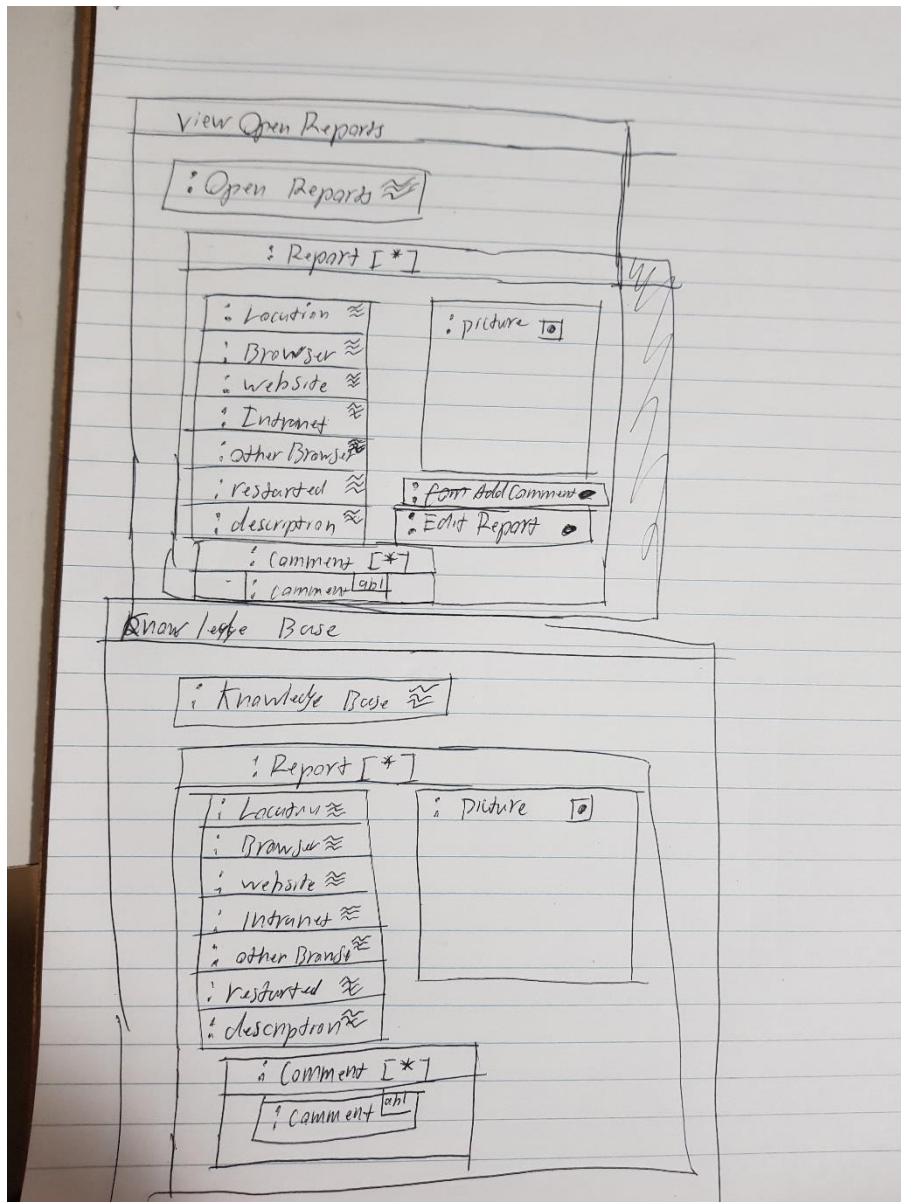 View Open Reports
: Open Reports
: Report [*]
: Location
: picture
: Browser
: website
: Intranet
: other Browser
: restarted
: Add Comment
: description
: Edit Report
: Comment [*]
: comment abl
Knowledge Base
: Knowledge Base
: Report [*]
: Location
: Picture
: Browser
: website
: Intranet
: other Browse
: restarted
: description
: Comment [*]
: comment abl